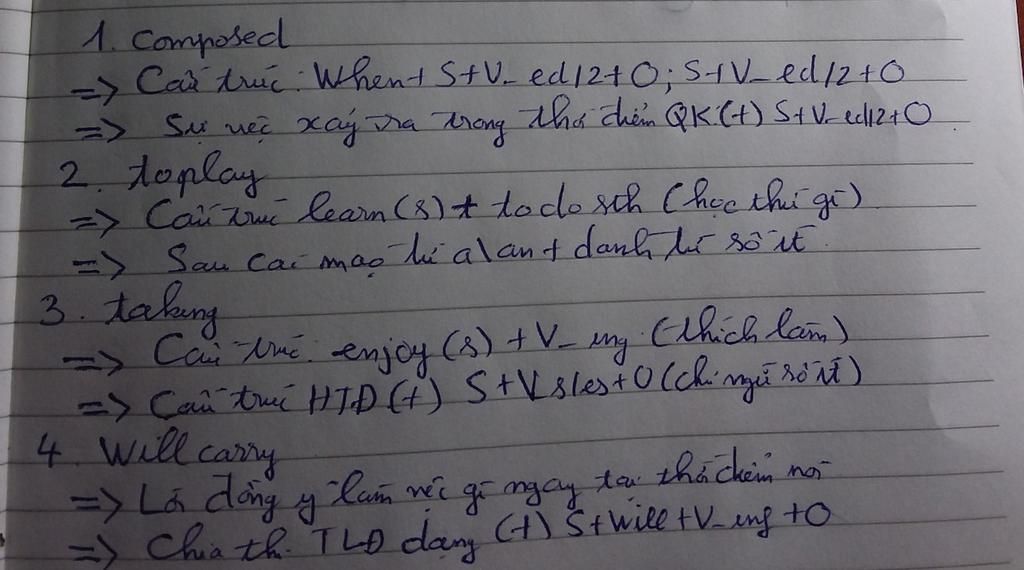 1. Composed
=> Cấu trúc: When + S+V_ed/2+O; S+V_ed/2+O
=> Sự việc xảy ra trong thời điểm QK(+) S+V_ed/2+O.
2. to play
=> Cấu trúc learn(s) + to do sth (học thứ gì)
=> Sau các mạo từ a\an + danh từ số ít.
3. taking
=> Cấu trúc: enjoy(s) + V_ing (thích làm)
=> Cấu trúc HTĐ(+) S+Vs/es+O (chủ ngữ số ít)
4. Will carry
=> Lời đồng ý làm việc gì ngay tại thời điểm nói
=> Chia thì TLĐ dạng (+) S+will+V_ing+O